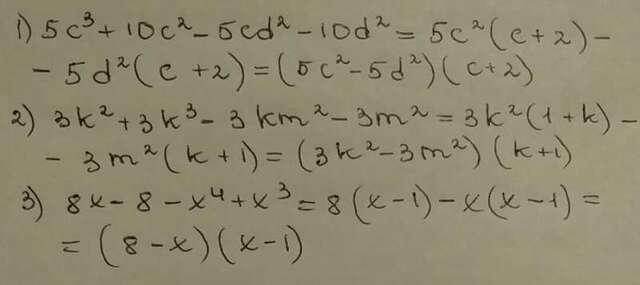 1) 5c³ + 10c² - 5cd² - 10d² = 5c² (c + 2) -
- 5d² (c + 2) = (5c² - 5d²) (c + 2)
2) 3k² + 3k³ - 3km² - 3m² = 3k² (1 + k) -
- 3m² (k + 1) = (3k² - 3m²) (k + 1)
3) 8x - 8 - x⁴ + x³ = 8 (x - 1) - x (x - 1) =
= (8 - x) (x - 1)